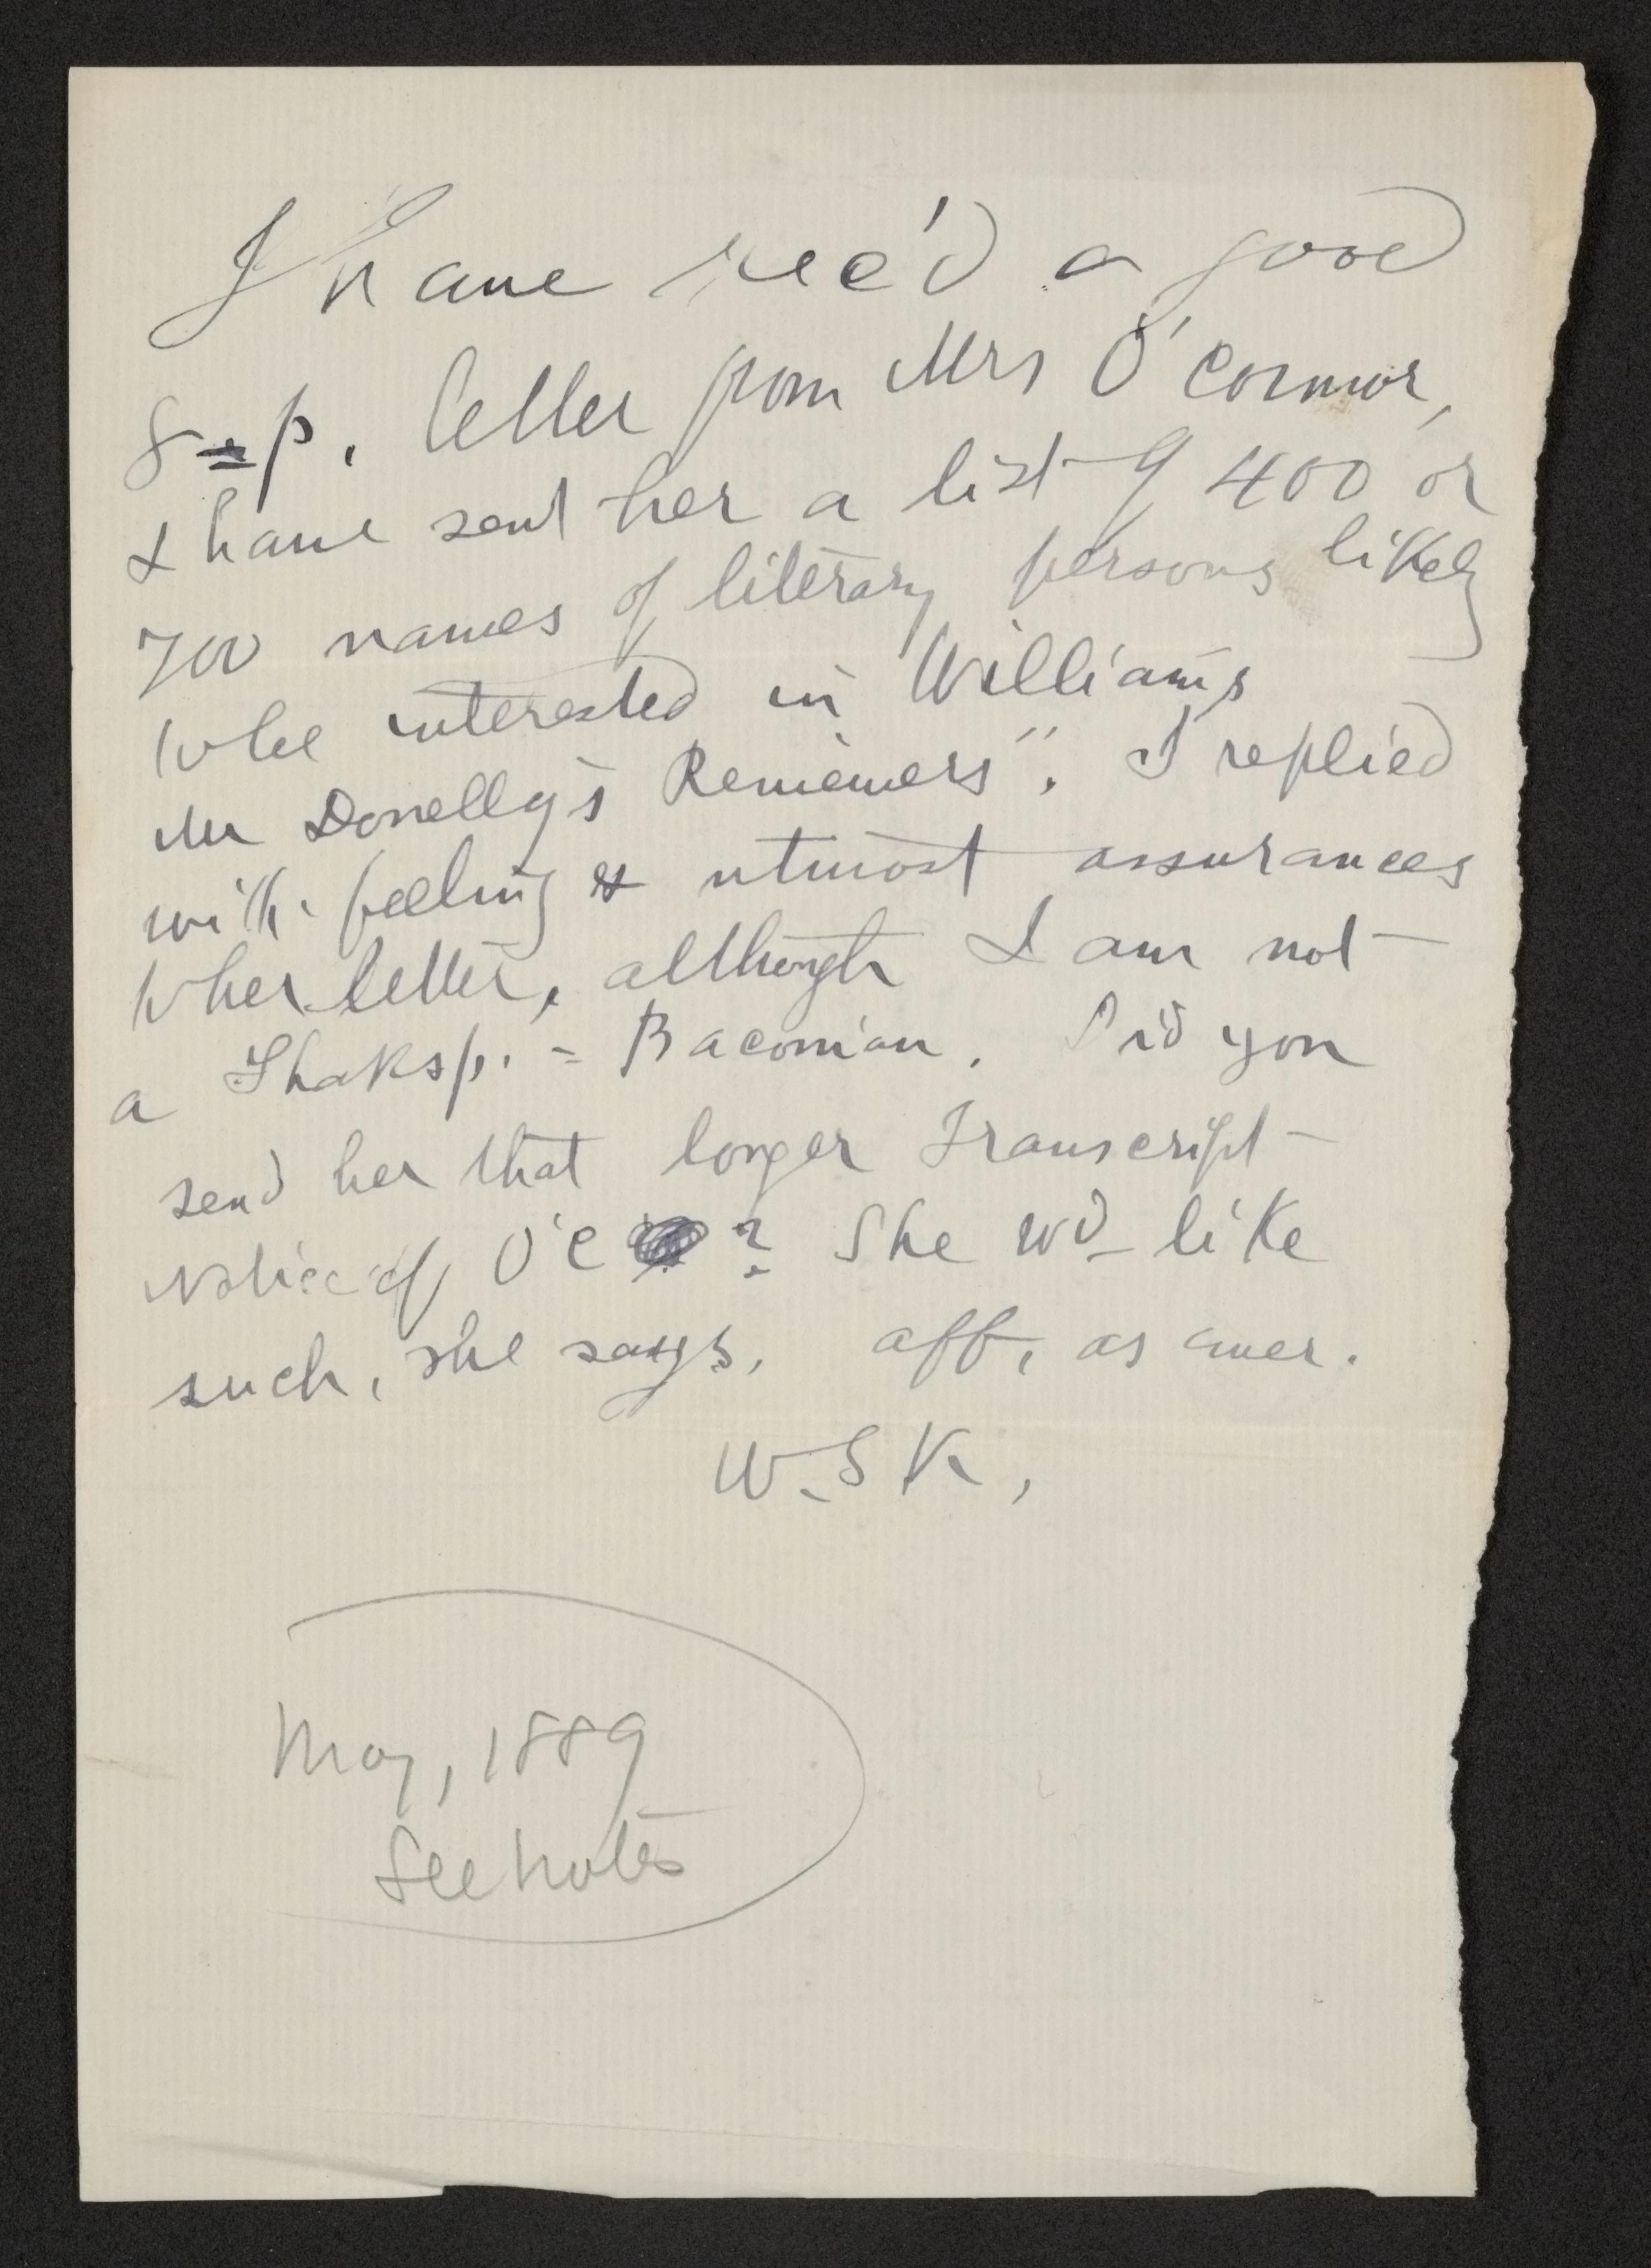 I have rec'd a good
8=p. letter from Mrs O'Connor,
& have sent her a list of 400 or
700 names of literary persons likely
to be interested in William's
Mr Donelly's Reviewers". I replied
with feeling & utmost assurances
to her letter, although I am not
a Shaksp. = Baconian. Did you
send her that longer Transcript
notice of O'C ? She wd like
such, she says. aff, as ever.
W.S K,
May, 1889
See notes